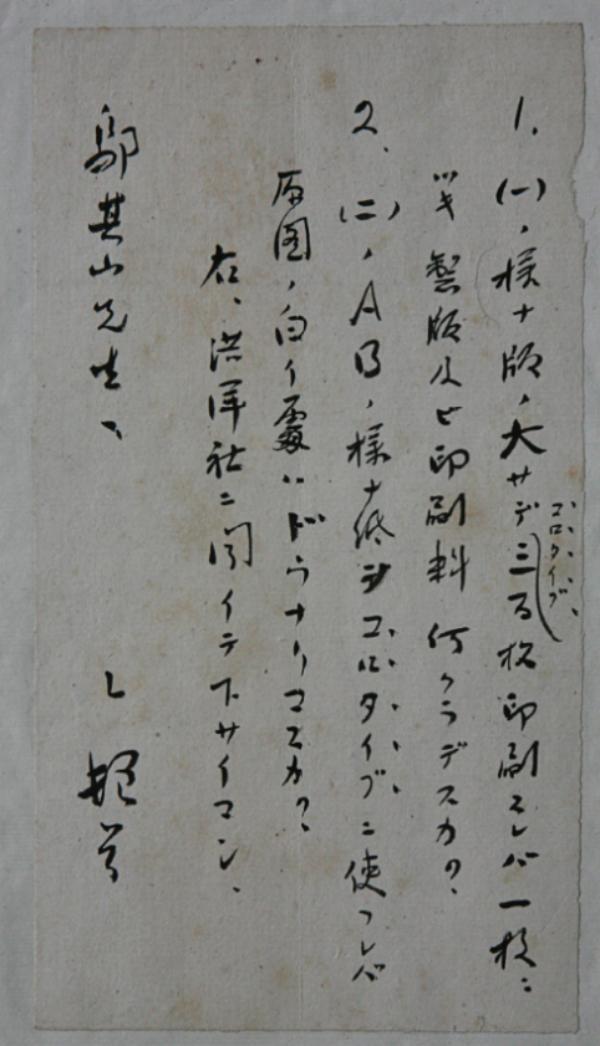 1、(一)ノ様ナ版ノ大サデ三百枚印刷スレバ一枚ニ
コロタイプ
ツキ製版及ビ印刷料何クラデスカ?
2、(二)ノABノ様ナ紙ヲコロタイプニ使フレバ
原図ノ白イ處ハドウナリマスカ?
右、洪洋社ニ聞イテ下サイマシ、
鄔其山先生、
L 頓首